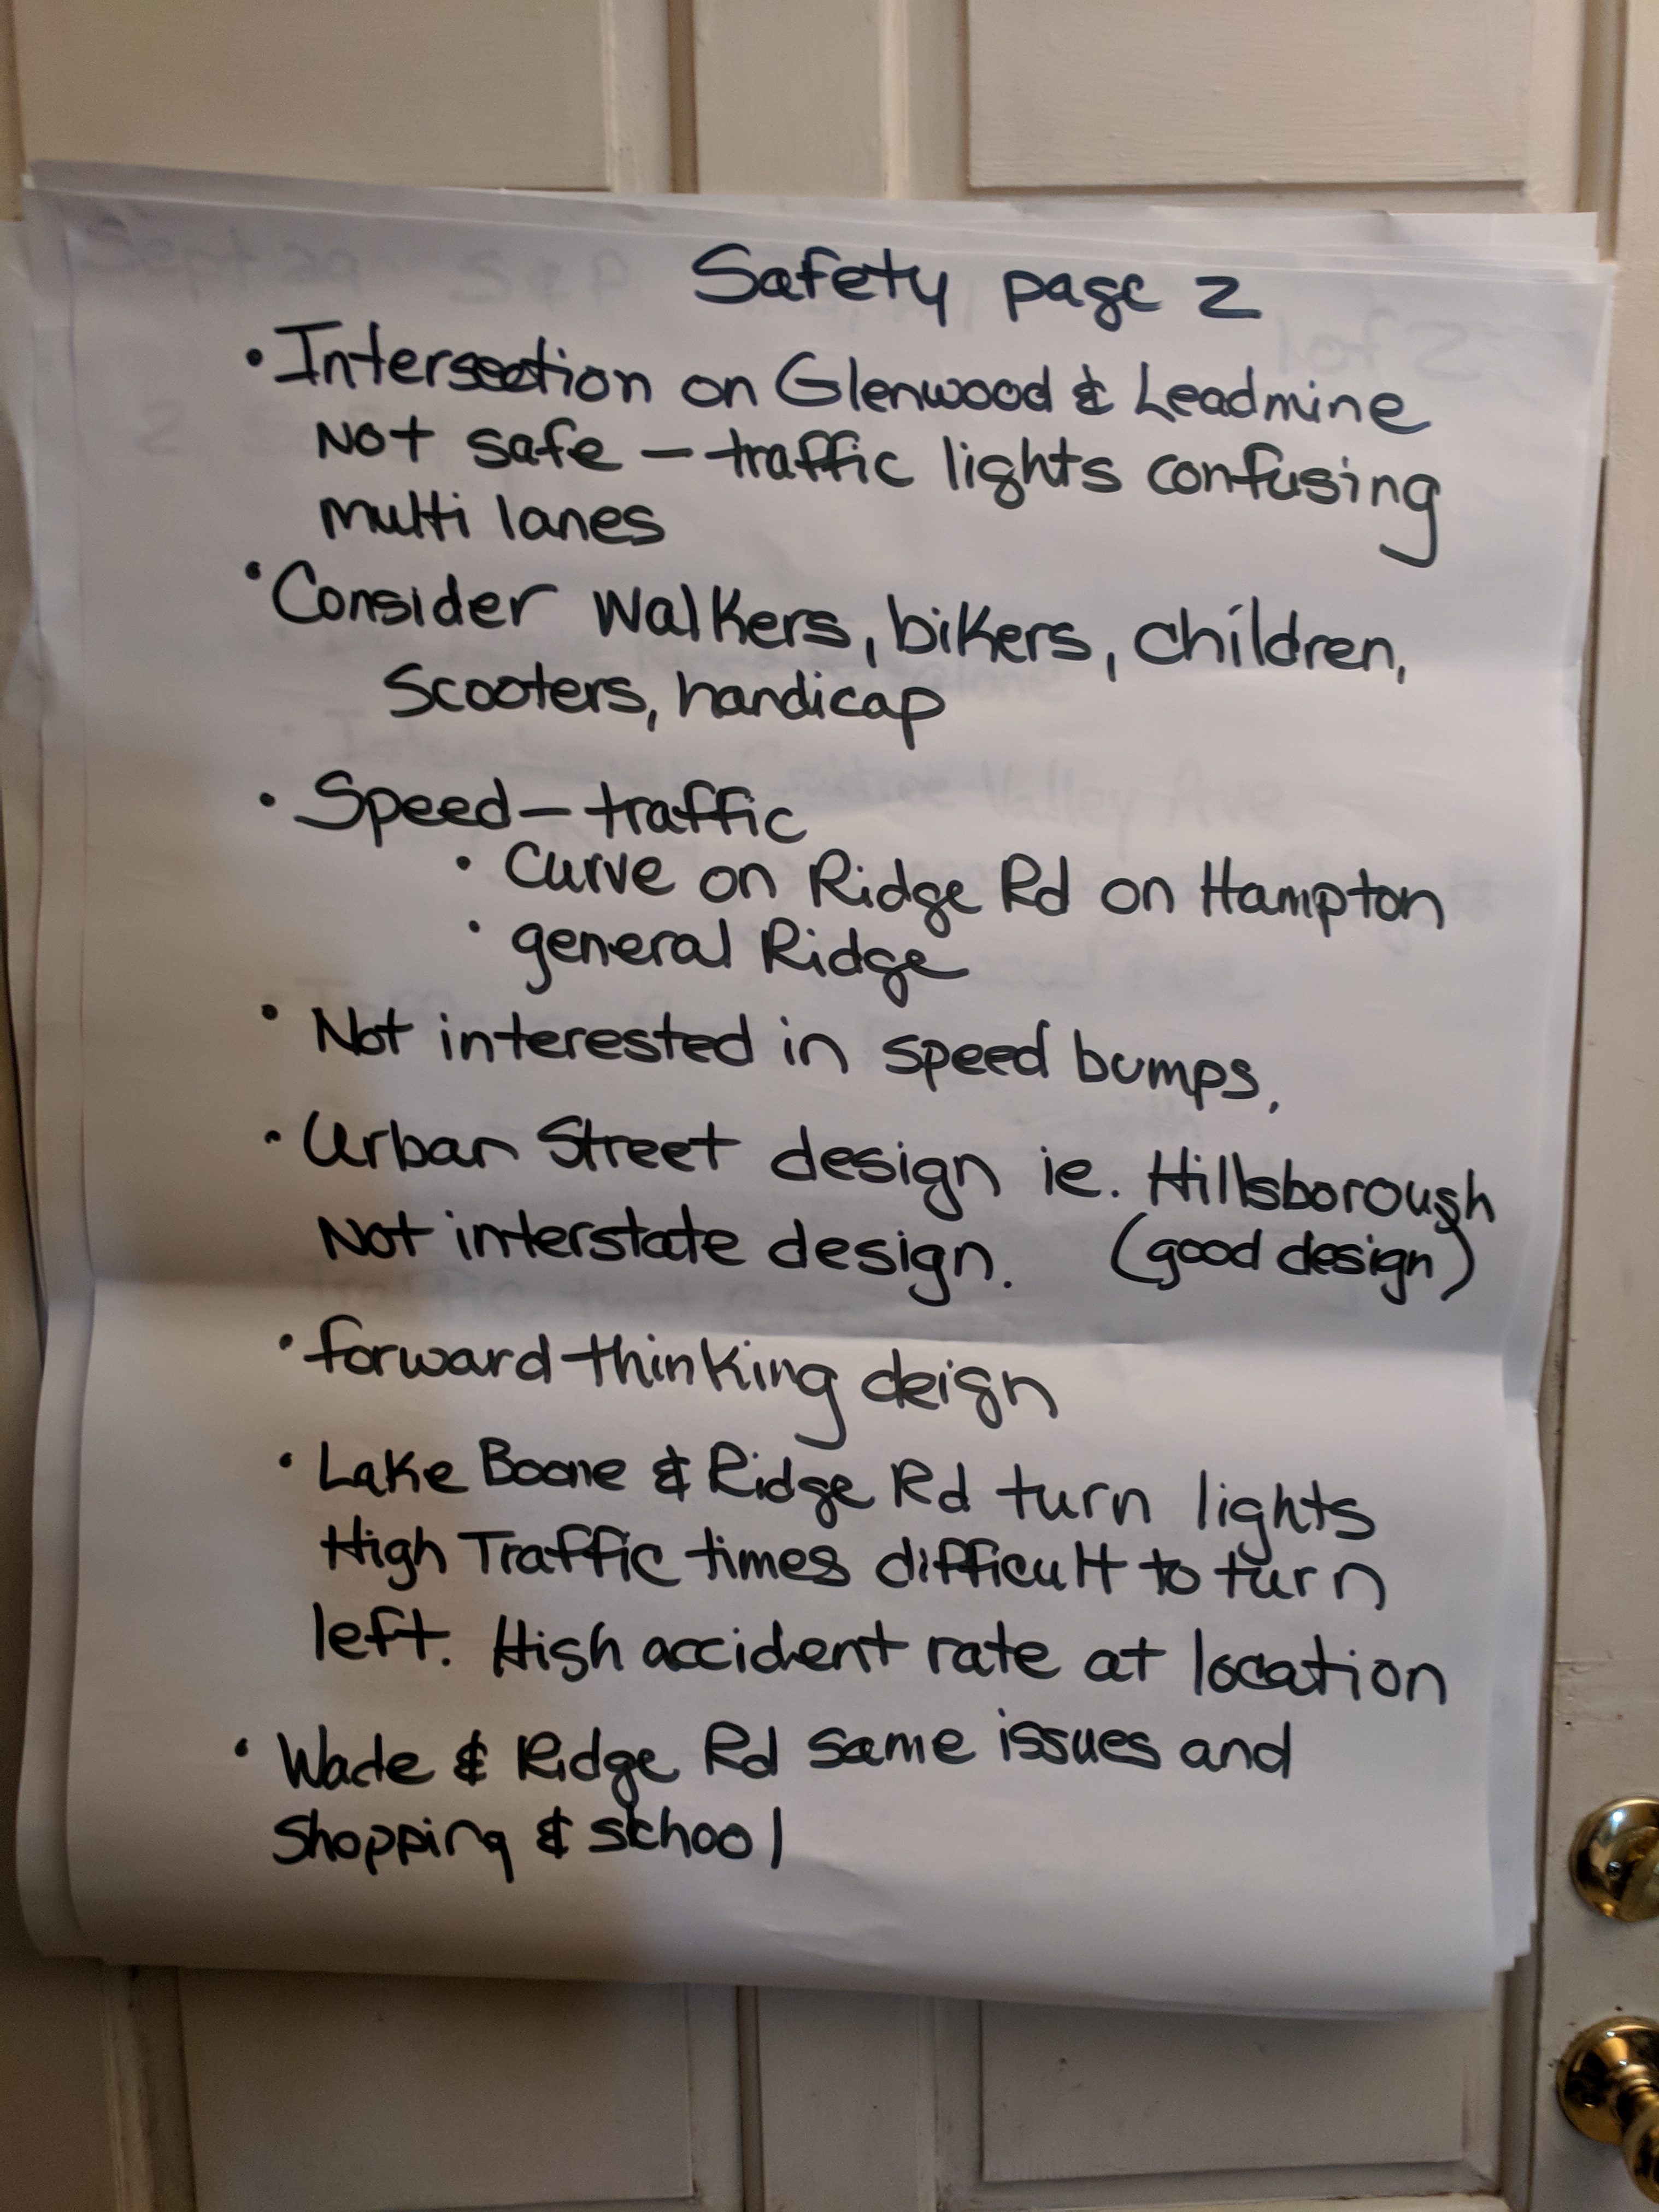 Safety page 2
• Intersection on Glenwood & Leadmine
Not safe – traffic lights confusing
multi lanes
• Consider walkers, bikers, children,
Scooters, handicap
• Speed – traffic
• Curve on Ridge Rd on Hampton
• general Ridge
• Not interested in speed bumps,
• Urban Street design ie. Hillsborough
Not interstate design. (good design)
• forward thinking deign
• Lake Boone & Ridge Rd turn lights
High Traffic times difficult to turn
left. High accident rate at location
• Wade & Ridge Rd same issues and
Shopping & school